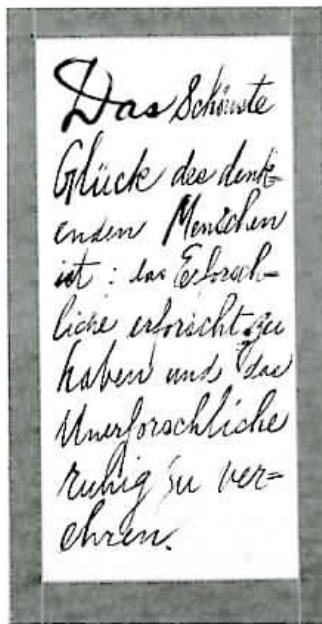 Das Schönste
Glück des denk=
enden Menschen
ist: das Erforsch-
liche erforscht zu
haben und das
Unerforschliche
ruhig zu ver=
ehren.